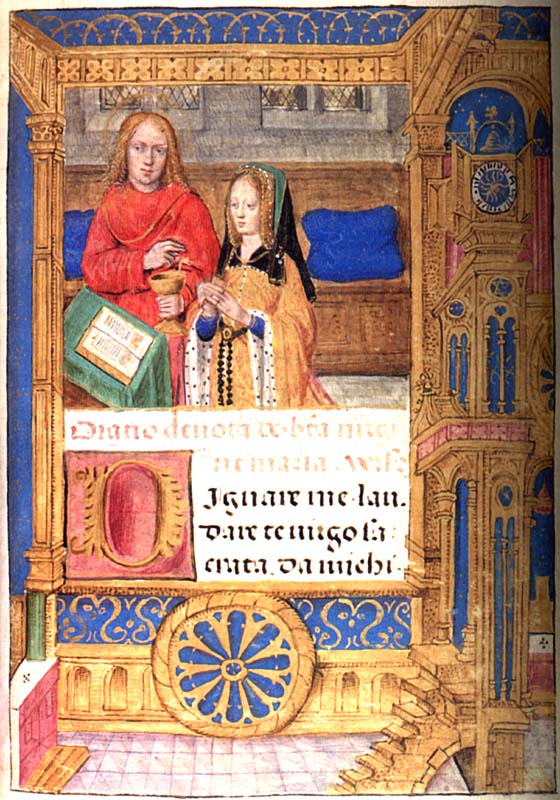 Oratio devota de bta virgi
ne maria.
Ignare me lau
dare te virgo sa
crata. da michi